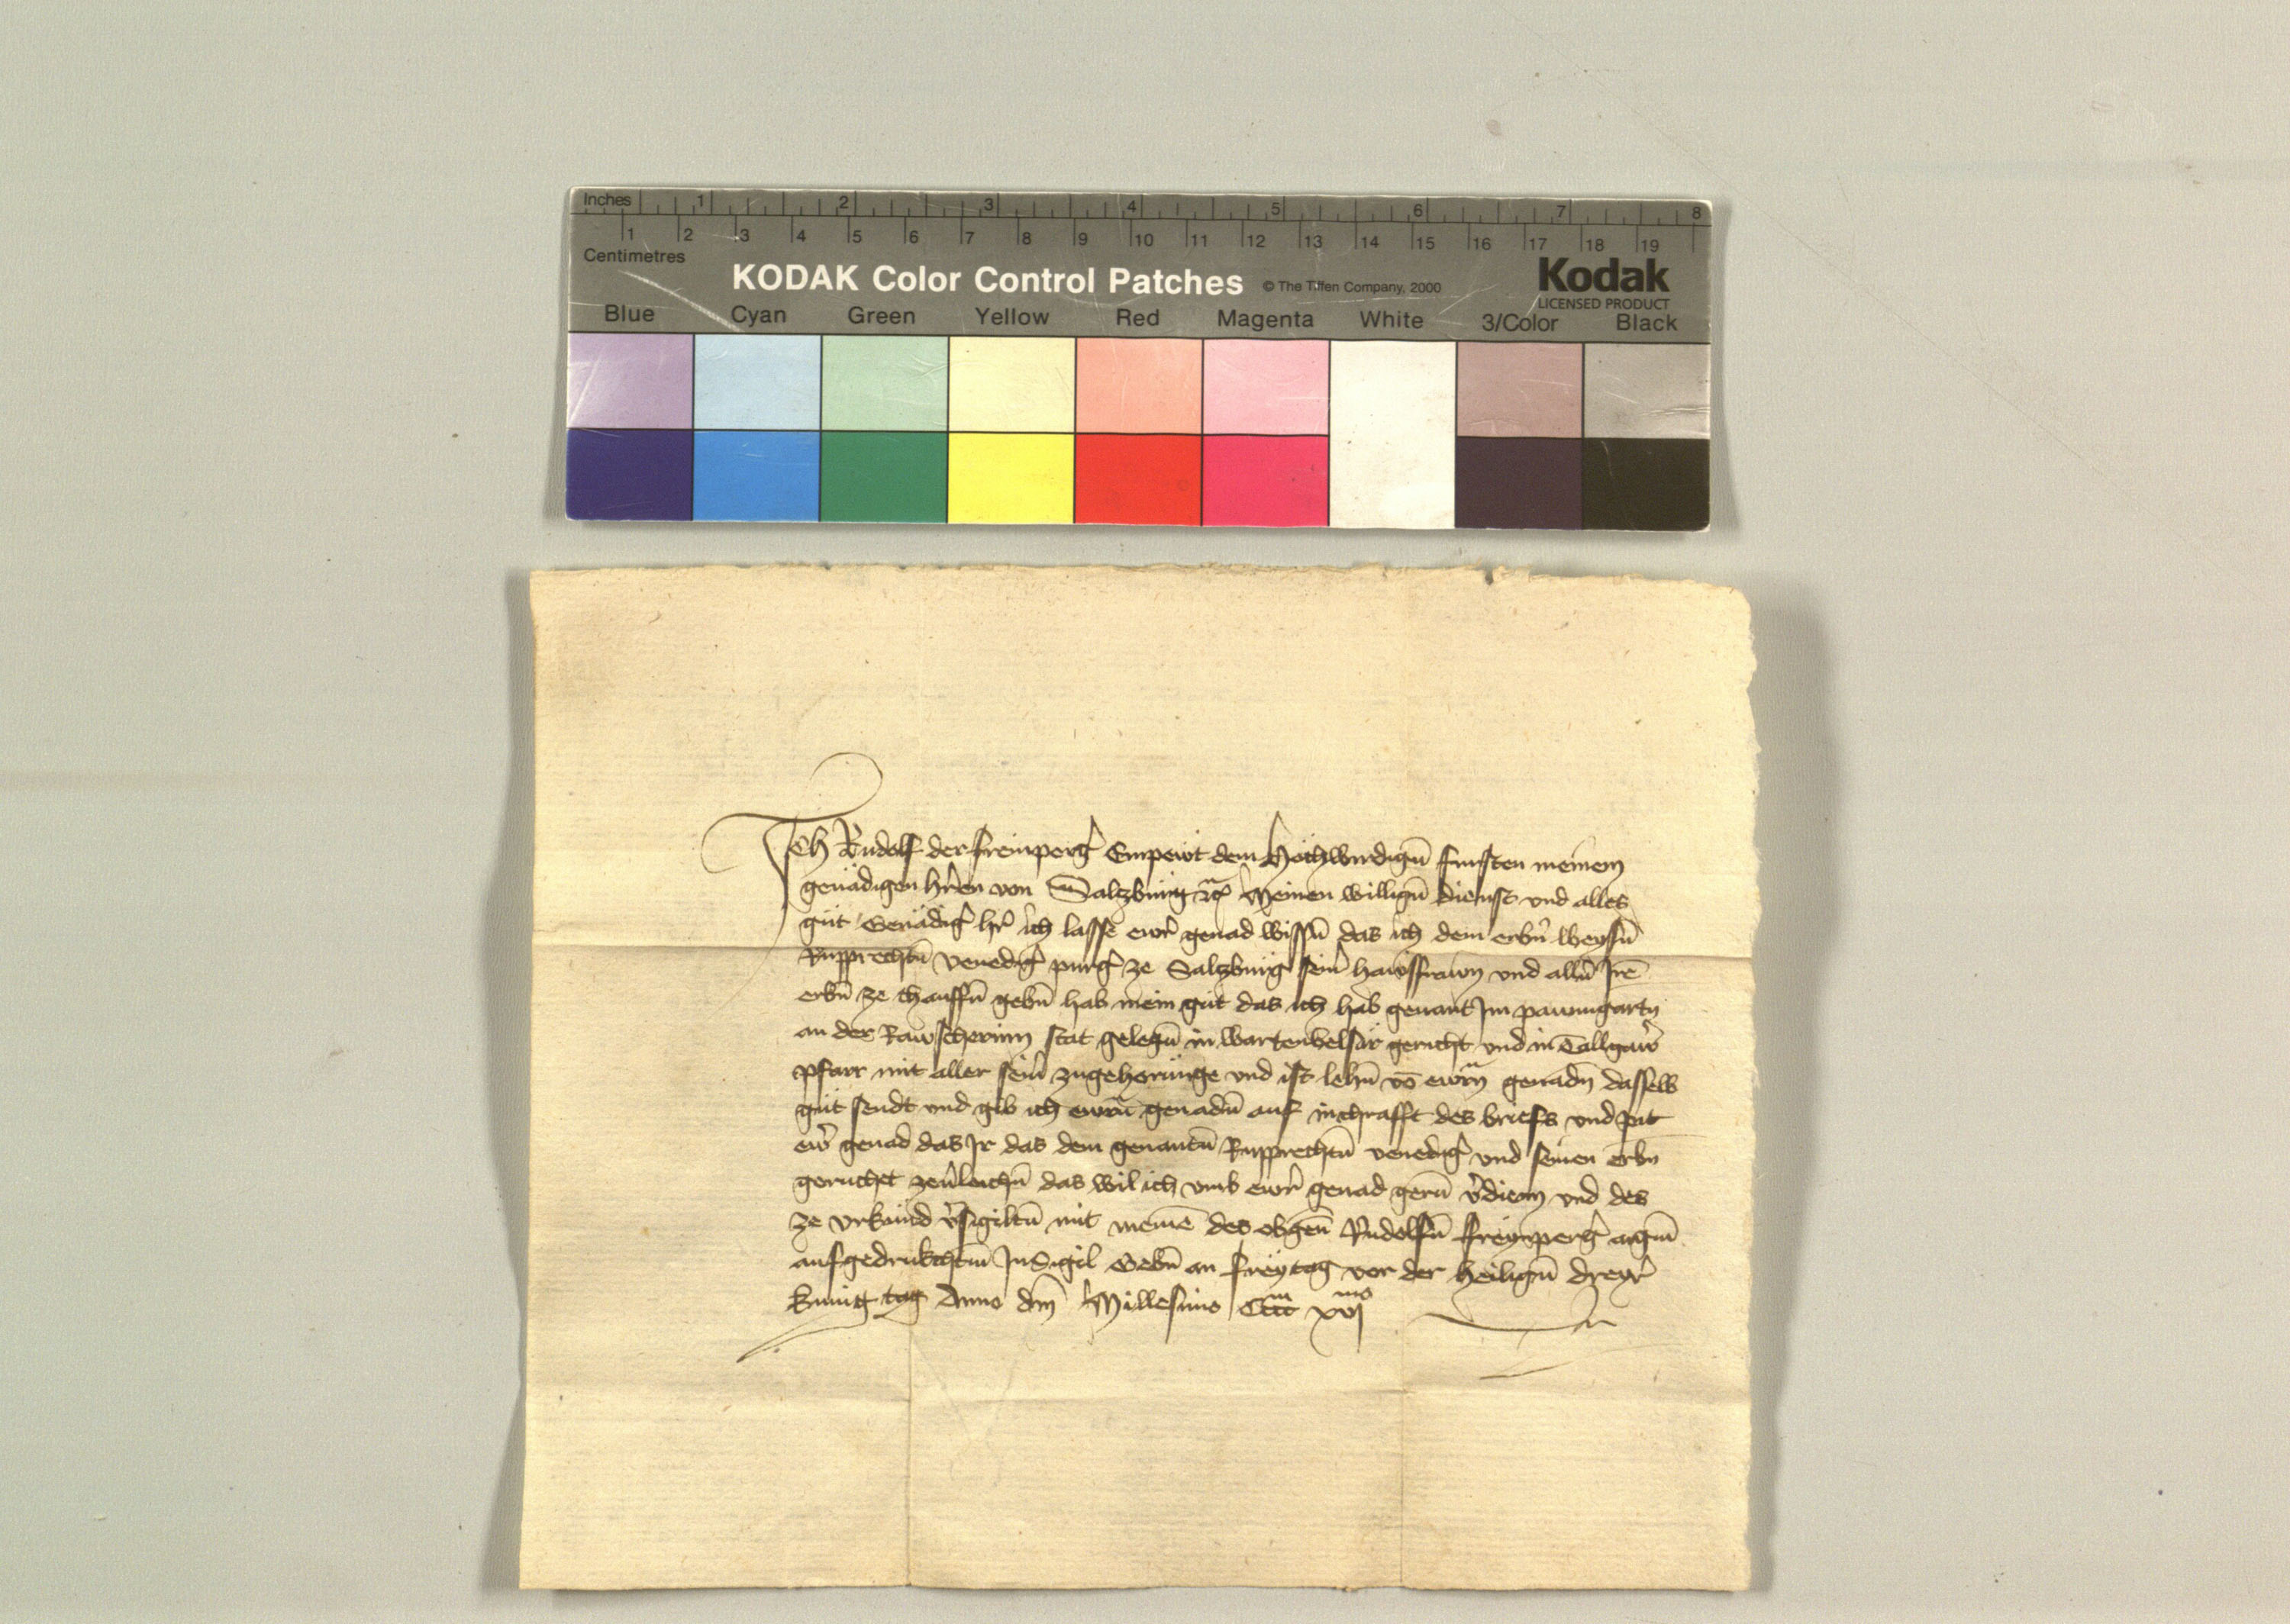 Inches 1 2 3 4 5 6 7 8
1 2 3 4 5 6 7 8 9 10 11 12 13 14 15 16 17 18 19
Centimetres
KODAK Color Control Patches © The Tiffen Company, 2000 Kodak
LICENSED PRODUCT
Blue Cyan Green Yellow Red Magenta White 3/Color Black
Ich Rudolf der freinperg̉ Empewt dem Hochwirdigñ fursten meinem
genädigen hr̉en von Salzburg Meinen willigñ dienst vnd alles
gut Genädig̉ hr̉ ich lasse ewr̉ genad wissñ das ich dem erbñ weysñ
Rupprechtñ venedig̉ purg̉ ze Salzburg sein̉ hawsfrawn vnd allñ Irē
erbñ ze chauffñ gebñ hab mein gut das ich hab genant Im pawmgartn
an der Rawscherinn stat gelegñ in wartenvelsär gericht vnd in Tallgaw̉
pfarr mit aller sein̉ zugehorunge vnd ist lehñ vō ewrn genadn dasselb
gut sendt vnd gib ich ewrñ genadñ auf in chrafft des briefs vnd pit
ew̉ genad das Ir das dem genantñ Rupprechtñ venedig̉ vnd seinen erbn
geruchet zeu̓leichñ das wil ich vmb ewr̉ genad gerñ v̉dienn vnd des
ze vrkund v̉sigiltñ mit meinē des obgeñ Rudolfñ freynperg̉ aigm̄
aufgedrukchtm̄ Insigil Gebñ an freytag vor der heiligñ dreyr̉
kunig tag Anno dm̄ Millesimo Cccc xvj mo